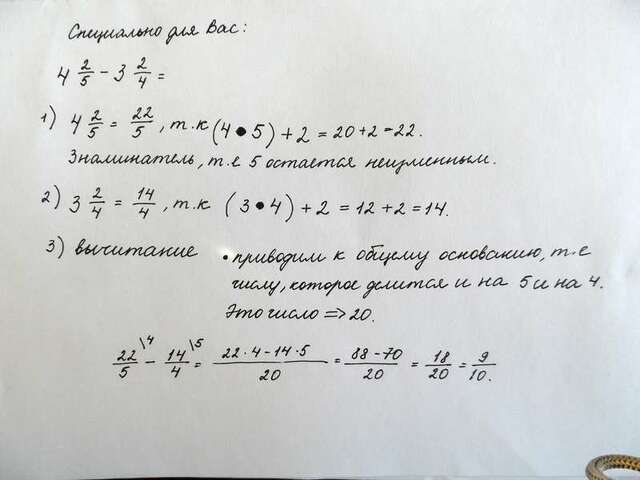 Специально для Вас:
4 2/5 - 3 2/4 =
1) 4 2/5 = 22/5, т.к (4 • 5) + 2 = 20 + 2 = 22.
Знаминатель, т.е 5 остается неизменным.
2) 3 2/4 = 14/4, т.к (3 • 4) + 2 = 12 + 2 = 14.
3) вычитание • приводим к общему основанию, т.е
числу, которое делится и на 5 и на 4.
Это число => 20.
22/5 \4 - 14/4 \5 = 22·4-14·5/20 = 88-70/20 = 18/20 = 9/10.